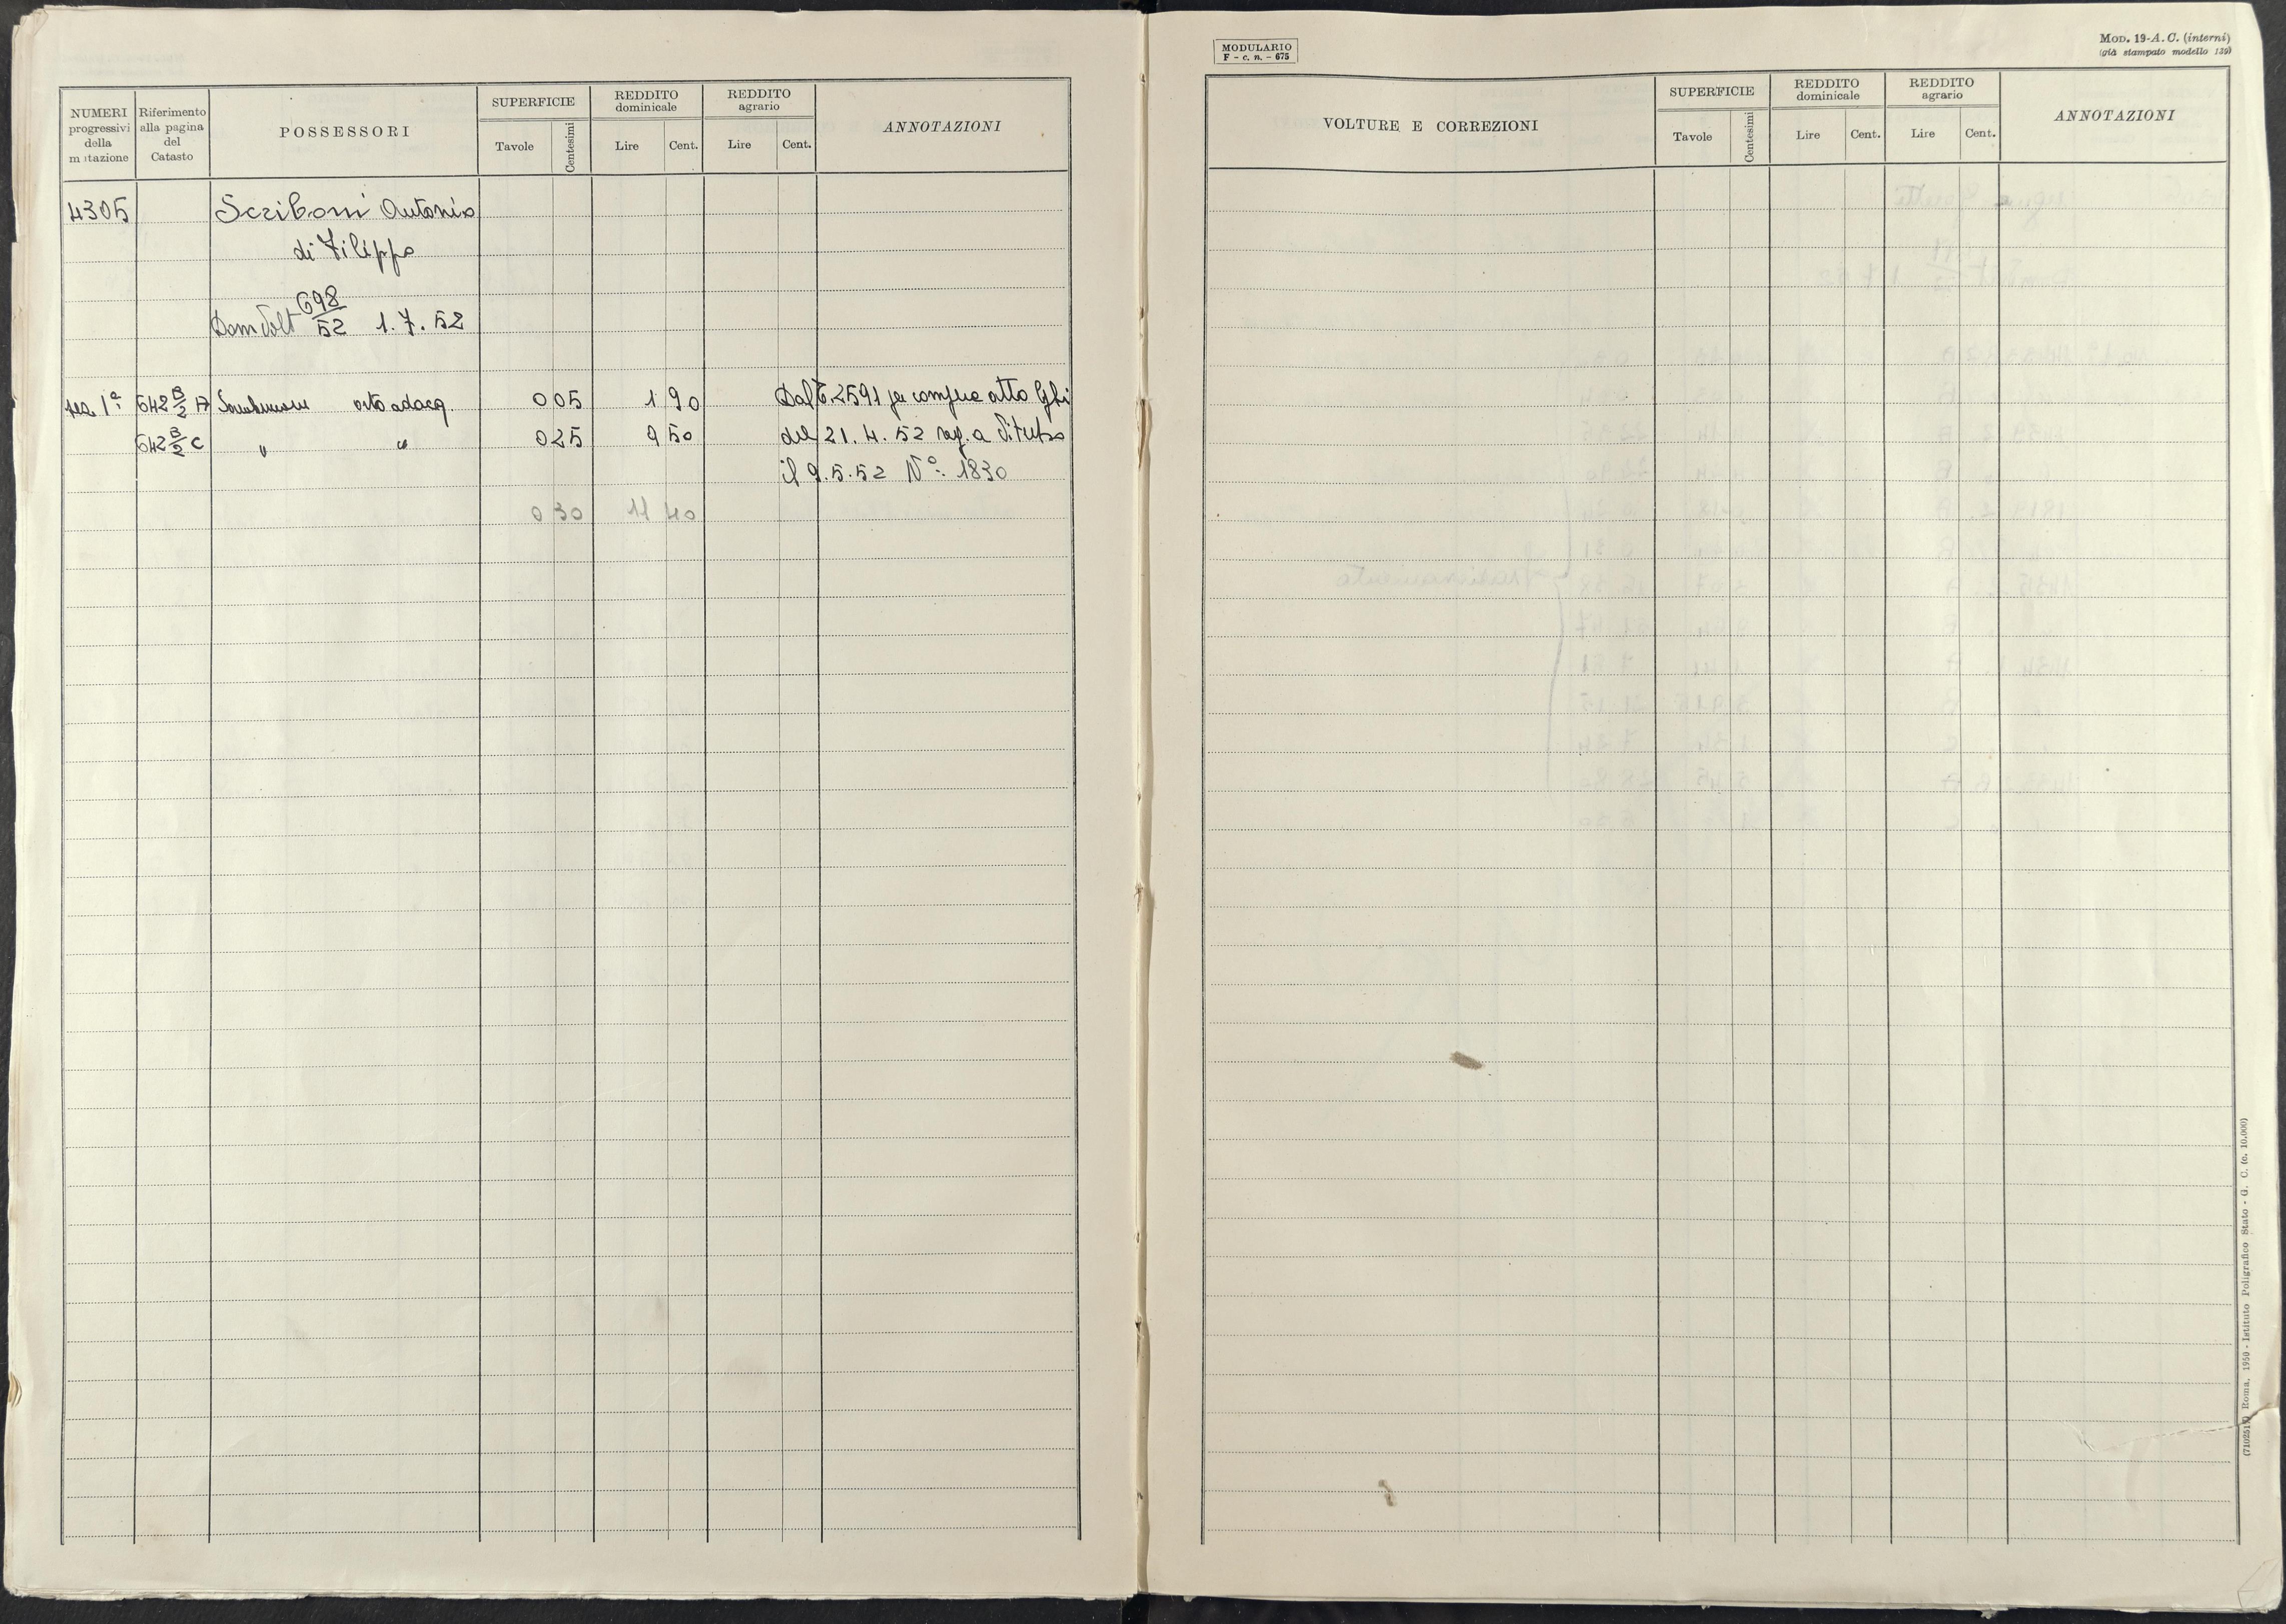 NUMERI progressivi della mutazione
Riferimento alla pagina del Catasto
POSSESSORI
SUPERFICIE
Tavole Centesimi
REDDITO dominicale
Lire Cent.
REDDITO agrario
Lire Cent.
ANNOTAZIONI
4305 Scriboni Antonio
di Filippo
Dom Volt 698/52 1.7.52
sez. 1ª 642 B/2 A orto adacq. 0 05 1 90 Dal 2591 per compra atto
642 B/2 C " " 0 25 9 50 del 21.4.52 reg. a
il 9.5.52 N° 1830
0 30 11 40
MODULARIO
F - c. n. - 675
MOD. 19-A. C. (interni)
(già stampato modello 139)
VOLTURE E CORREZIONI
SUPERFICIE
Tavole Centesimi
REDDITO dominicale
Lire Cent.
REDDITO agrario
Lire Cent.
ANNOTAZIONI
Roma, 1950 - Istituto Poligrafico Stato - G. C. (c. 10.000)